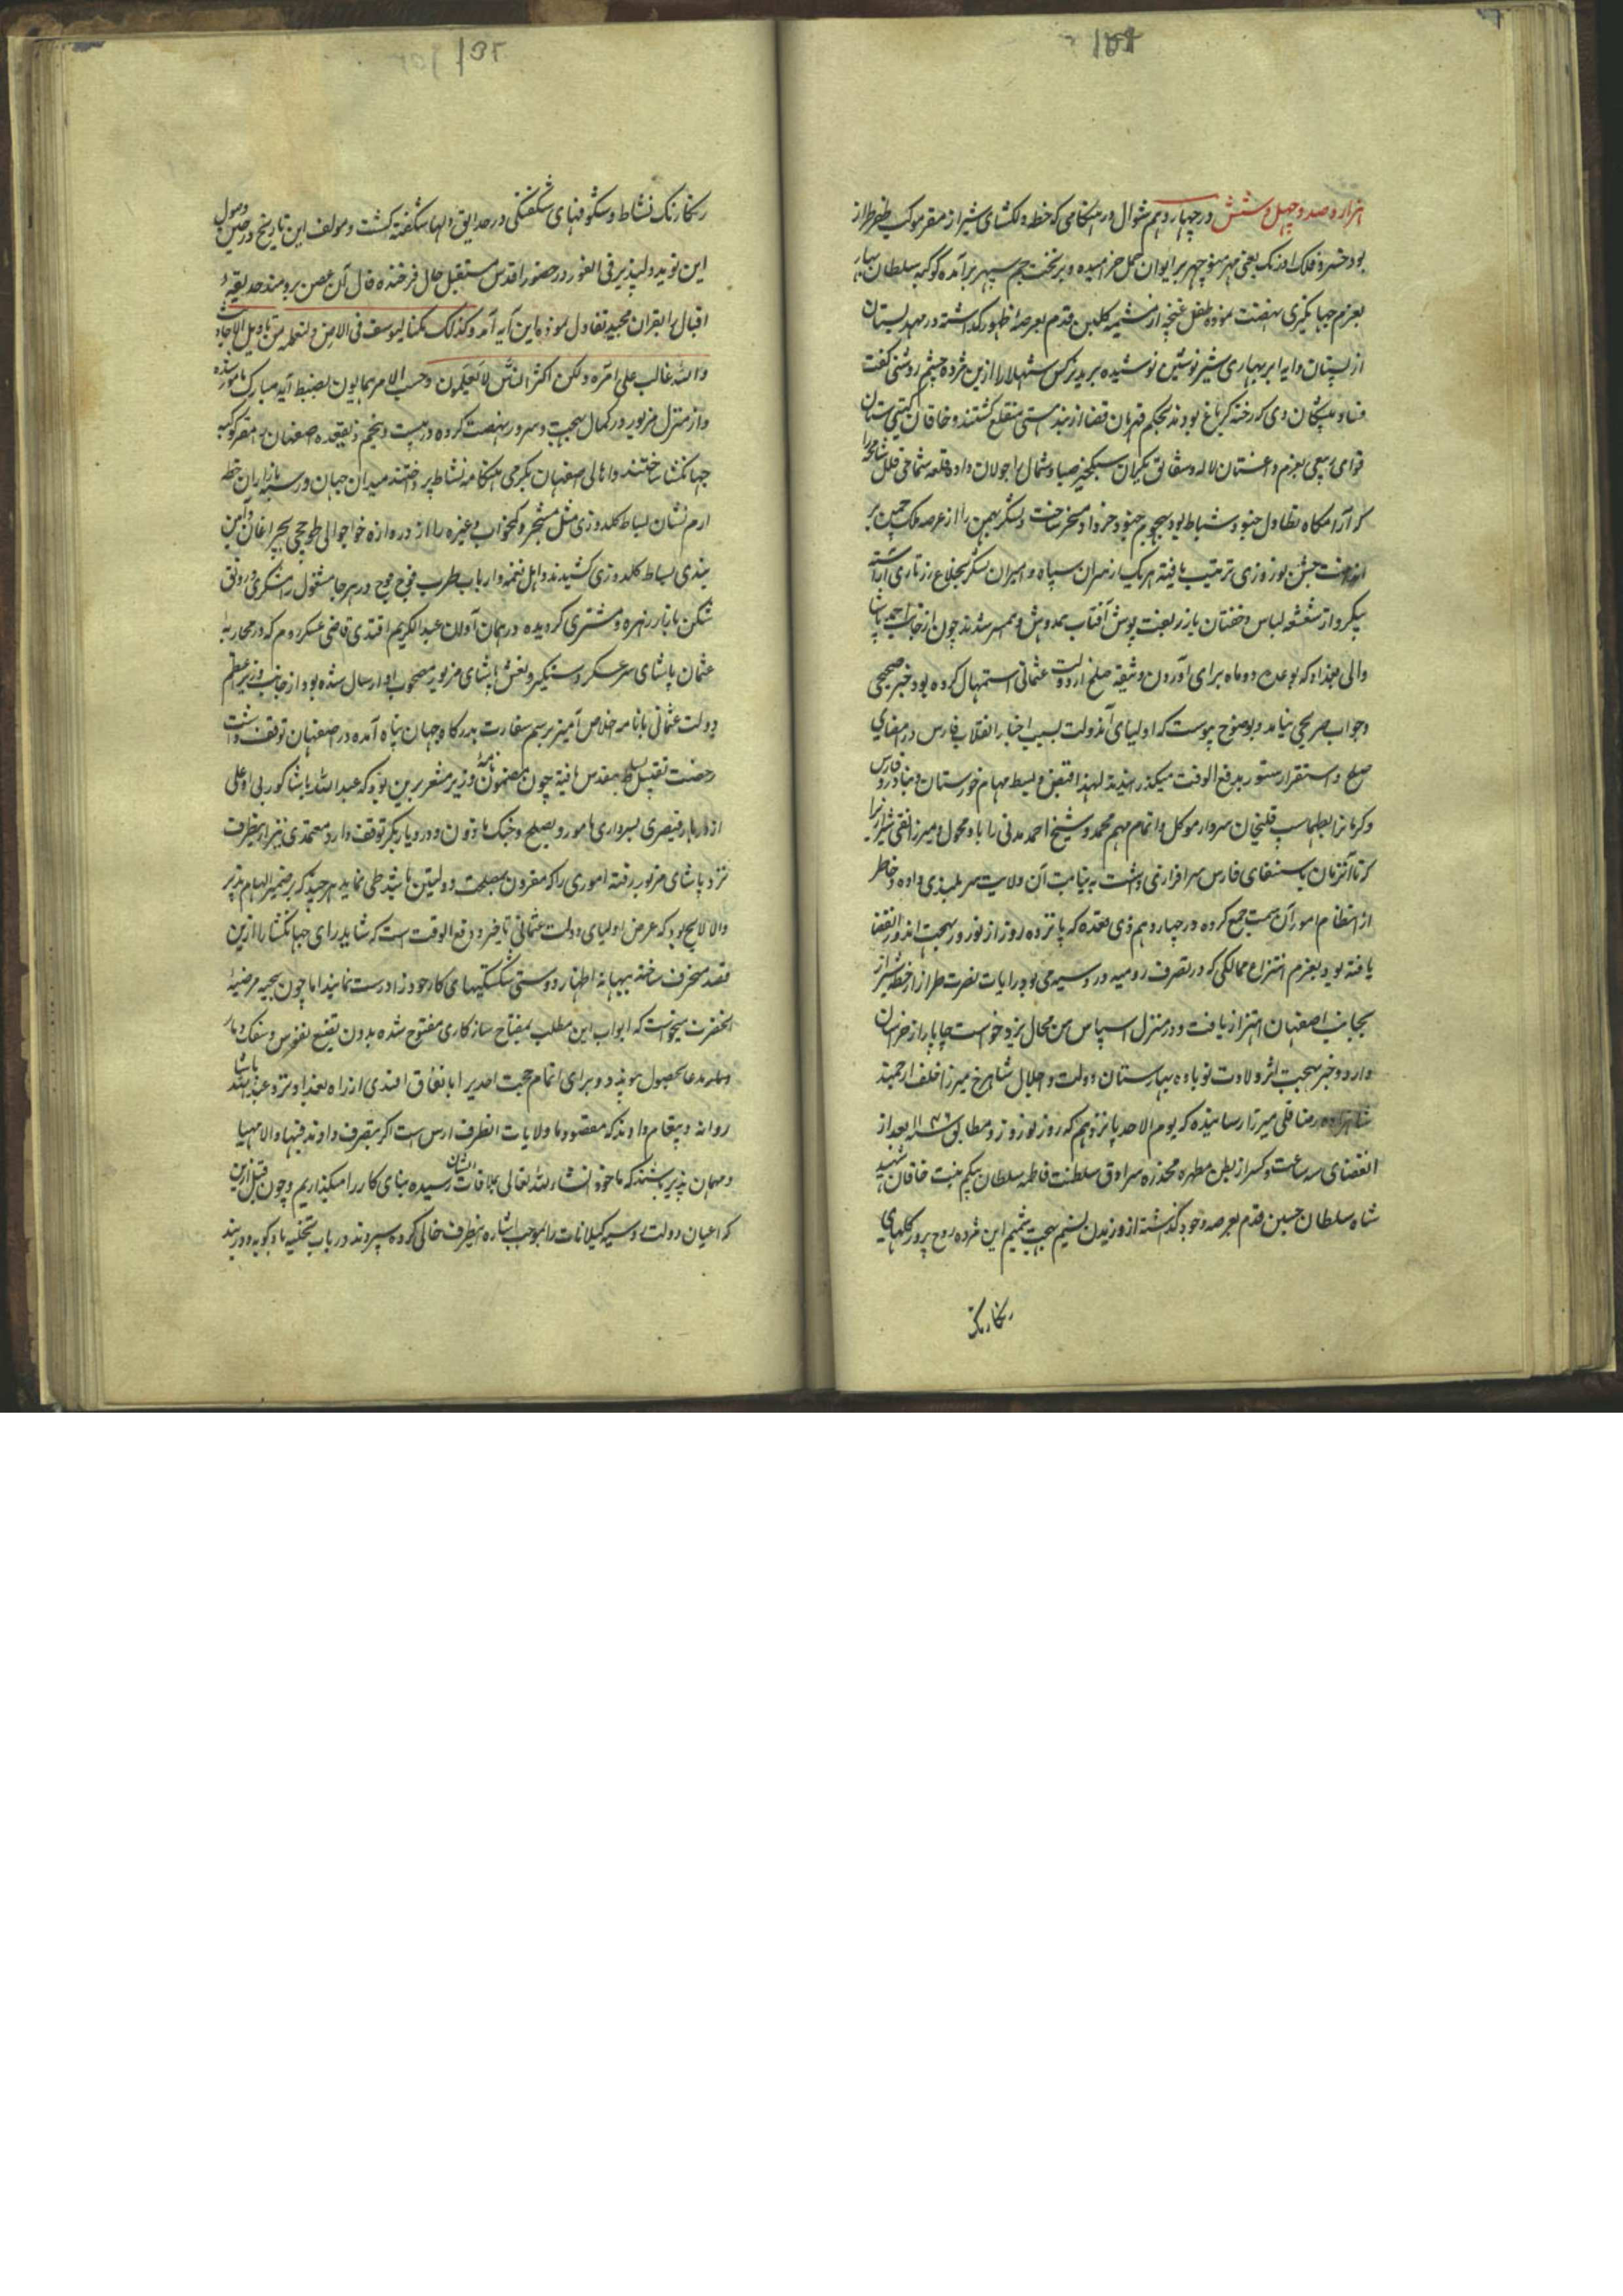 هزار و صد و چهل و شش در چهاردهم شوال در هنگامی که خطه دلکشای شیراز مقر موکب ظفر طراز
بود خسرو فلک اورنک یعنی مهر منوچهر بر ایوان حمل خرامیده و بر تخت جم سپهر برآمده کوکبه سلطان بهار
بعزم جهانگیری نهضت نموده طفل غنچه از مشیمه گلبن قدم بعرصه ظهور گذاشته در مهد بستان
از پستان دایه ابر بهاری شیر نوشین نوشیده سر بدر نرکس شهلا را ازین مژده چشم روشنی گفت
فساد پیشگان دی که رخنه گر باغ بودند بحکم قهرمان قضا از بند هستی منقلع گشتند و خاقان گیتی ستان
قوای ربیعی بعزم داغستان لاله و شقایق یکران سبکخیز صبا و شمال را جولان داده قلعه شماخی قلل شامخه را
که آرامگاه تطاول جنود شباط بود بهجوم جنود خرداد مسخر ساخت و لشکر بهمن را از عرصه ملک چمن بر
انداخت جشن نوروزی ترتیب یافته هر یک از سران سپاه و امیران لشکر بخلاع زرتاری آراسته
پیکر و از شعشعه لباس و خفتان بازربفت پوش آفتاب همدوش و همسر شدند چون از جانب احمد پاشا
والی بغداد که بوعده دو ماه برای آوردن وثیقه صلح از دولت عثمانی استمهال کرده بود خبر صحیحی
و جواب صریحی نیامد و بوضوح پیوست که اولیای آندولت بسبب اخبار انقلاب فارس در امضای
صلح و استقرار دستور بدفع الوقت میگذرانیدند لهذا قبض و بسط مهام خوزستان و بنادر و فارس
و کرمانرا بطهماسب قلیخان سردار موکل و اتمام مهم محمد و شیخ احمد مدنی را باو محول و میرزا تقی شیرازی را
که تا آنزمان باستیفای فارس سرافرازی داشت به نیابت آن ولایت سربلندی داده و خاطر
از انتظام امور آن سمت جمع کرده در چهاردهم ذی قعده که پانزده روز از نوروز بهجت اندوز انقضا
یافته بود بعزم انتزاع ممالکی که در تصرف رومیه و روسیه می بود رایات نصرت طراز از خطه شیراز
بجانب اصفهان اهتزاز یافت و در منزل اسپاس من محال یزدخواست چاپار از خراسان
وارد و خبر بهجت اثر ولادت نوباوه بهارستان دولت و اجلال شاهرخ میرزا خلف ارجمند
شاهزاده رضا قلی میرزا رسانیده که یوم الاحد پانزدهم که روز نوروز و مطابق سنه ۱۱۴۶ بعد از
انقضای سه ساعت و کسر از بطن مطهره مخدره سرادق سلطنت فاطمه سلطان بیکم بنت خاقان شهید
شاه سلطان حسین قدم بعرصه وجود گذاشته از وزیدن نسیم بهجت شمیم این مژده روح پرور گلهای
رنکارنک
رنکارنک نشاط و شکوفهای شکفتگی در حدایق دلها شکفته گشت و مولف این تاریخ در حین وصول
این نوید دلپذیر فی الفور در حضور اقدس مستقبل حال فرخنده فال آن غصن برومند حدیقه
اقبال را بقرآن مجید تفاول نموده این آیه آمد و کذلک مکنا لیوسف فی الارض و لنعلمه من تاویل الاحادیث
والله غالب علی امره ولکن اکثر الناس لا یعلمون و حسب الامر همایون بضبط آیه مبارکه مامور شده
و از منزل مزبور در کمال بهجت و سرور نهضت کرده در بیست و پنجم ذیقعده اصفهان را مقر کوکبه
جهانگشا ساختند و اهالی اصفهان بگرمی هنگامه نشاط پرداختند میدان جهان و رسته بازار آن خطه
ارم نشان بساط گلدوزی مثل مشجر و کمخواب و غیره را از دروازه خواجو الی طوقچی بچراغان و آئین
بندی بساط گلدوزی کشیدند و اهل نغمه و ارباب طرب فوج فوج در هر جا مشغول رامشگری و رونق
شکن بازار زهره و مشتری گردیده در همان آوان عبدالکریم افندی قاضی عسکر روم که در محاربه
عثمان پاشای سرعسکر دستگیر و نعش پاشای مزبور مصحوب او ارسال شده بود از جانب وزیر اعظم
دولت عثمانی با نامه اخلاص آمیز برسم سفارت بدرگاه جهان پناه آمده در اصفهان توقف داشت
رخصت تقبیل بساط مقدس یافته چون مضمون نامه وزیر مشعر برین بود که عبدالله پاشا کوپرلی اوغلی
از دربار قیصری بسرداری مامور و بصلح و جنگ ماذون و در دیاربکر توقف دارد معتمدی نیز از ینطرف
نزد پاشای مزبور رفته اموری را که مقرون بمصلحت دولتین باشد طی نماید هر چند که بر ضمیر الهام پذیر
والا لایح بود که غرض اولیای دولت عثمانی تاخیر و دفع الوقت است که شاید رای جهانگشا را ازین
قصد منحرف ساخته ببهانه اظهار دوستی شکستگیهای کار خود را درست نمایند اما چون سجیه مرضیه
آنحضرت میخواست که ابواب این مطلب بمفتاح سازکاری مفتوح شده بدون تضییع نفوس و سفک دماء
وصل مدعا بحصول پیوندد و برای اتمام حجت احدی را باتفاق افندی از راه بغداد نزد عبدالله پاشا
روانه و پیغام دادند که مقصود ما ولایات آنطرف ارس است اگر بتصرف دادند فبها والا مهیای
و مهمان پذیر باشند که ما خود انشاءالله تعالی بملاقات ایشان رسیده بنای کار را میگذاریم و چون قبل ازین
که اعیان دولت روسیه گیلانات را بموجب اشاره اینطرف خالی کرده سپردند در باب تخلیه بادکوبه و دربند